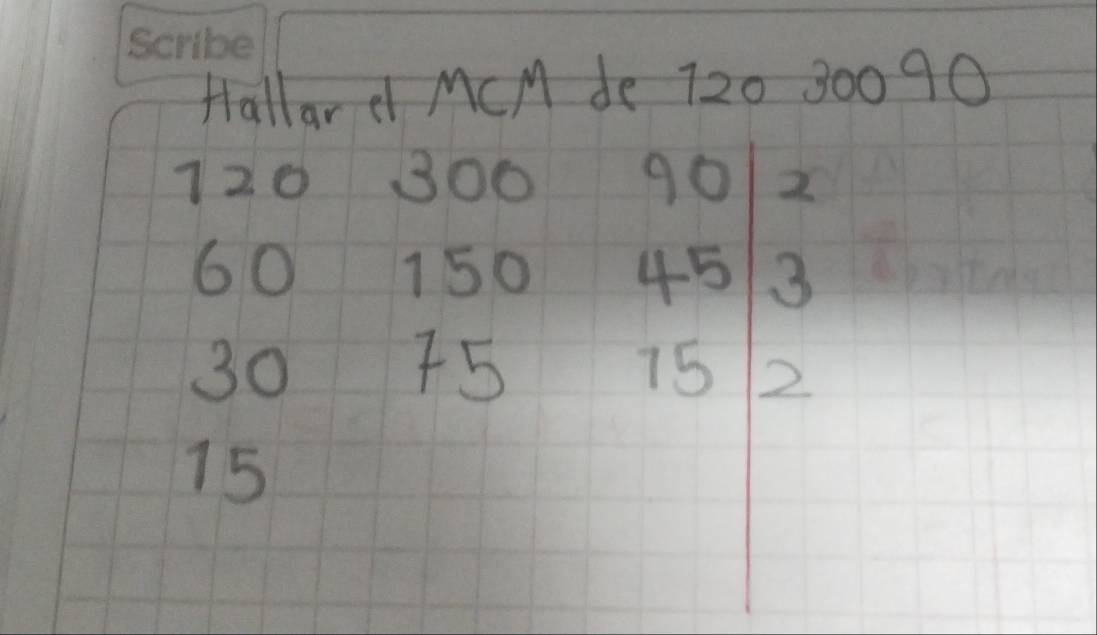 Scribe
Hallar el MCM de 120 300 90
120 300 90 2
60 150 45 3
30 75 15 2
15